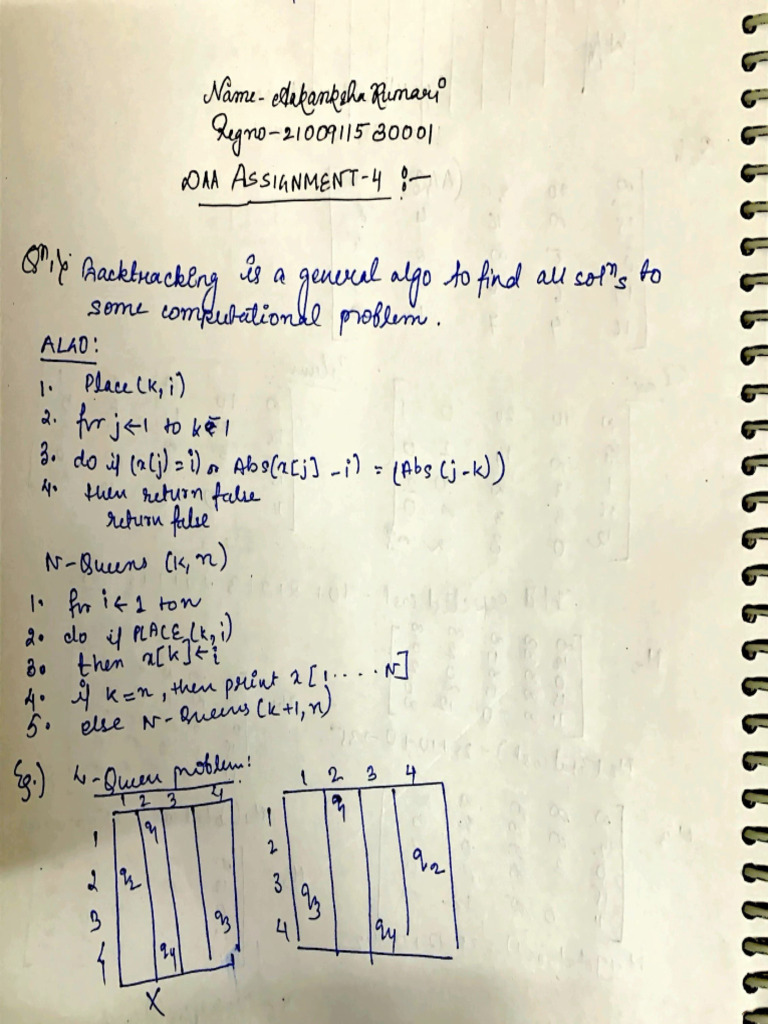 Name- Aakanksha Kumari
Regno-2100911530001
DAA ASSIGNMENT-4 :-
Qⁿ.1) Backtracking is a general algo to find all solⁿs to
some computational problem.
ALGO:
1. Place(k,i)
2. for j←1 to k-1
3. do if (x(j)=i) or Abs(x[j] -i) = (Abs (j-k))
4. then return false
return false
N-Queens (k,n)
1. for i←1 to n
2. do if PLACE(k,i)
3. then x[k]←i
4. if k=n, then print x[1....N]
5. else N-Queens(k+1,n)
Eg.) 4-Queen problem:
1 2 3 4
1 q1
2 q2
3 q3
4 q4
X
1 2 3 4
1 q1
2
3 q3 q2
4 q4